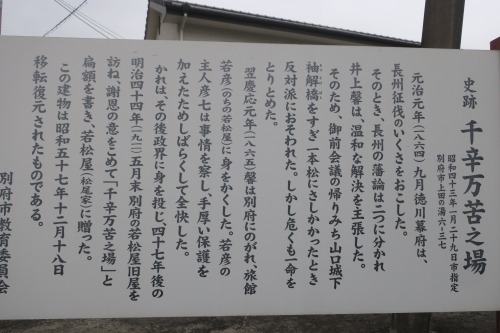 史跡 千辛万苦之場
昭和四十三年一月二十九日市指定
別府市上田の湯六-三七
元治元年(一八六四)九月徳川幕府は、
長州征伐のいくさをおこした。
そのとき、長州の藩論は二つに分かれ
井上馨は、温和な解決を主張した。
そのため、御前会議の帰りみち山口城下
袖解橋をすぎ一本松にさしかかったとき
反対派におそわれた。しかし危くも一命を
とりとめた。
翌慶応元年(一八六五)馨は別府にのがれ、旅館
若彦(のちの若松屋)に身をかくした。若彦の
主人彦七は事情を察し、手厚い保護を
加えたためしばらくして全快した。
かれは、その後政界に身を投じ、四十七年後の
明治四十四年(一九一一)五月末別府の若松屋旧屋を
訪ね、謝恩の意をこめて「千辛万苦之場」と
扁額を書き、若松屋(松尾家)に贈った。
この建物は昭和五十七年十二月十八日
移転復元されたものである。
別府市教育委員会